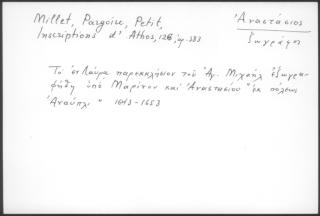 Millet, Pargoire, Petit,
Inscriptions d' Athos, 126, σ. 383
Ἀναστάσιος
ζωγράφος
Τὸ ἐν Λαύρᾳ παρεκκλήσιον τοῦ "Ἁγ. Μιχαήλ ἐζωγρα-
φήθη ὑπὸ Μαρίνου καὶ Ἀναστασίου" ἐκ πόλεως
Ἀναύπλι " 1643-1653